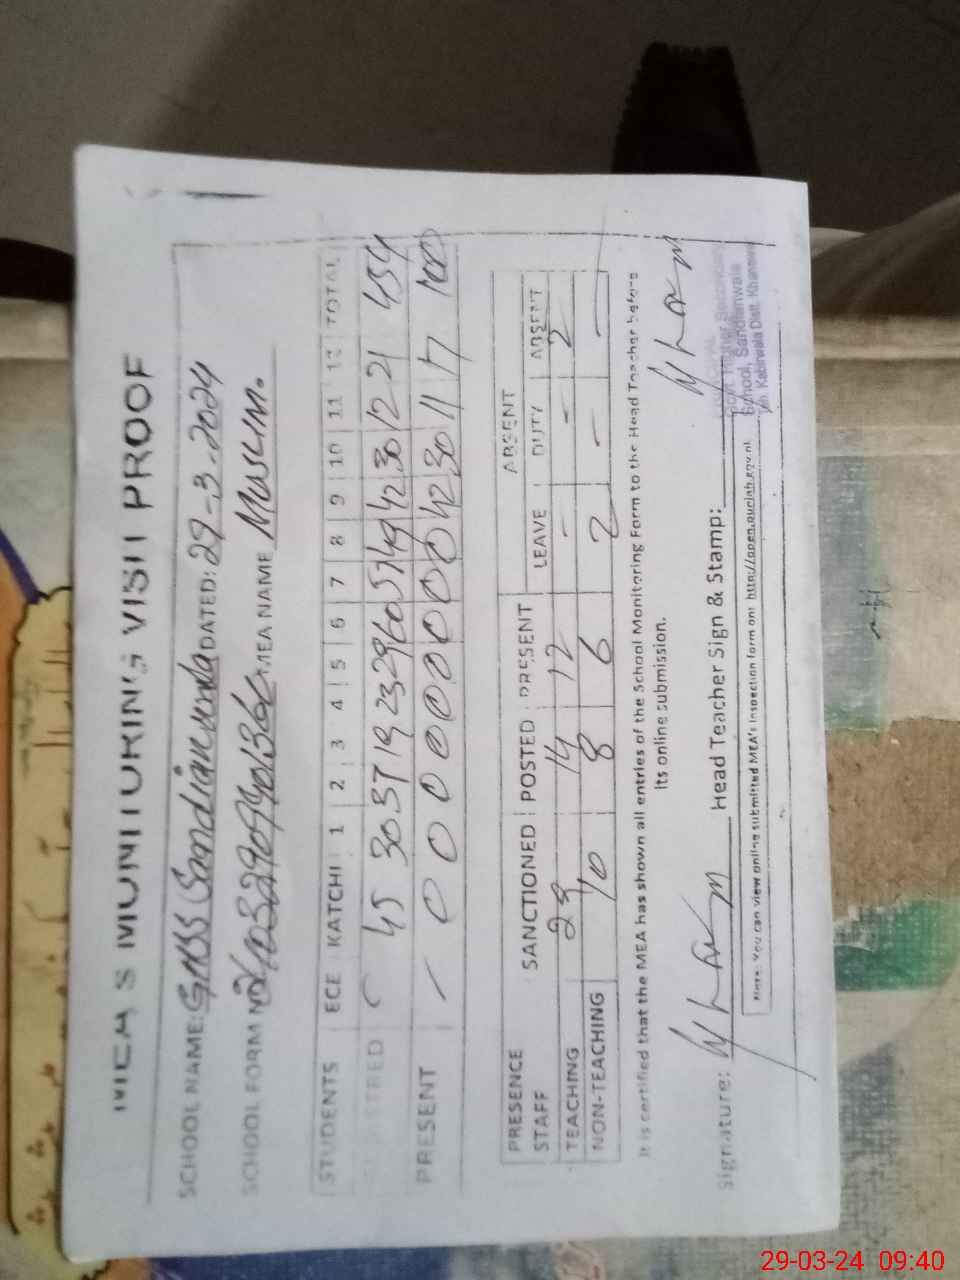 MEA'S MONITORING VISIT PROOF
SCHOOL NAME: GHSS Sandianwala DATED: 29-3-2024
SCHOOL FORM NO MEA NAME Muslim.
STUDENTS ECE KATCHI 1 2 3 4 5 6 7 8 9 10 11 12 TOTAL
45 30 37 19 23 29 60 57 49 42 30 12 21 454
PRESENT - 0 0 0 0 0 0 0 0 0 42 30 11 17 100
PRESENCE SANCTIONED POSTED PRESENT ABSENT
STAFF LEAVE DUTY ABSENT
TEACHING 23 14 12 - - 2
NON-TEACHING 10 8 6 2 - -
It is certified that the MEA has shown all entries of the School Monitoring Form to the Head Teacher before
its online submission.
Signature: Head Teacher Sign & Stamp:
Govt. Higher Secondary
School, Sandianwala
Teh. Kabirwala Distt. Khanewal
Note: You can view online submitted MEA's inspection form on: http://open.punjab.gov.pk
29-03-24 09:40